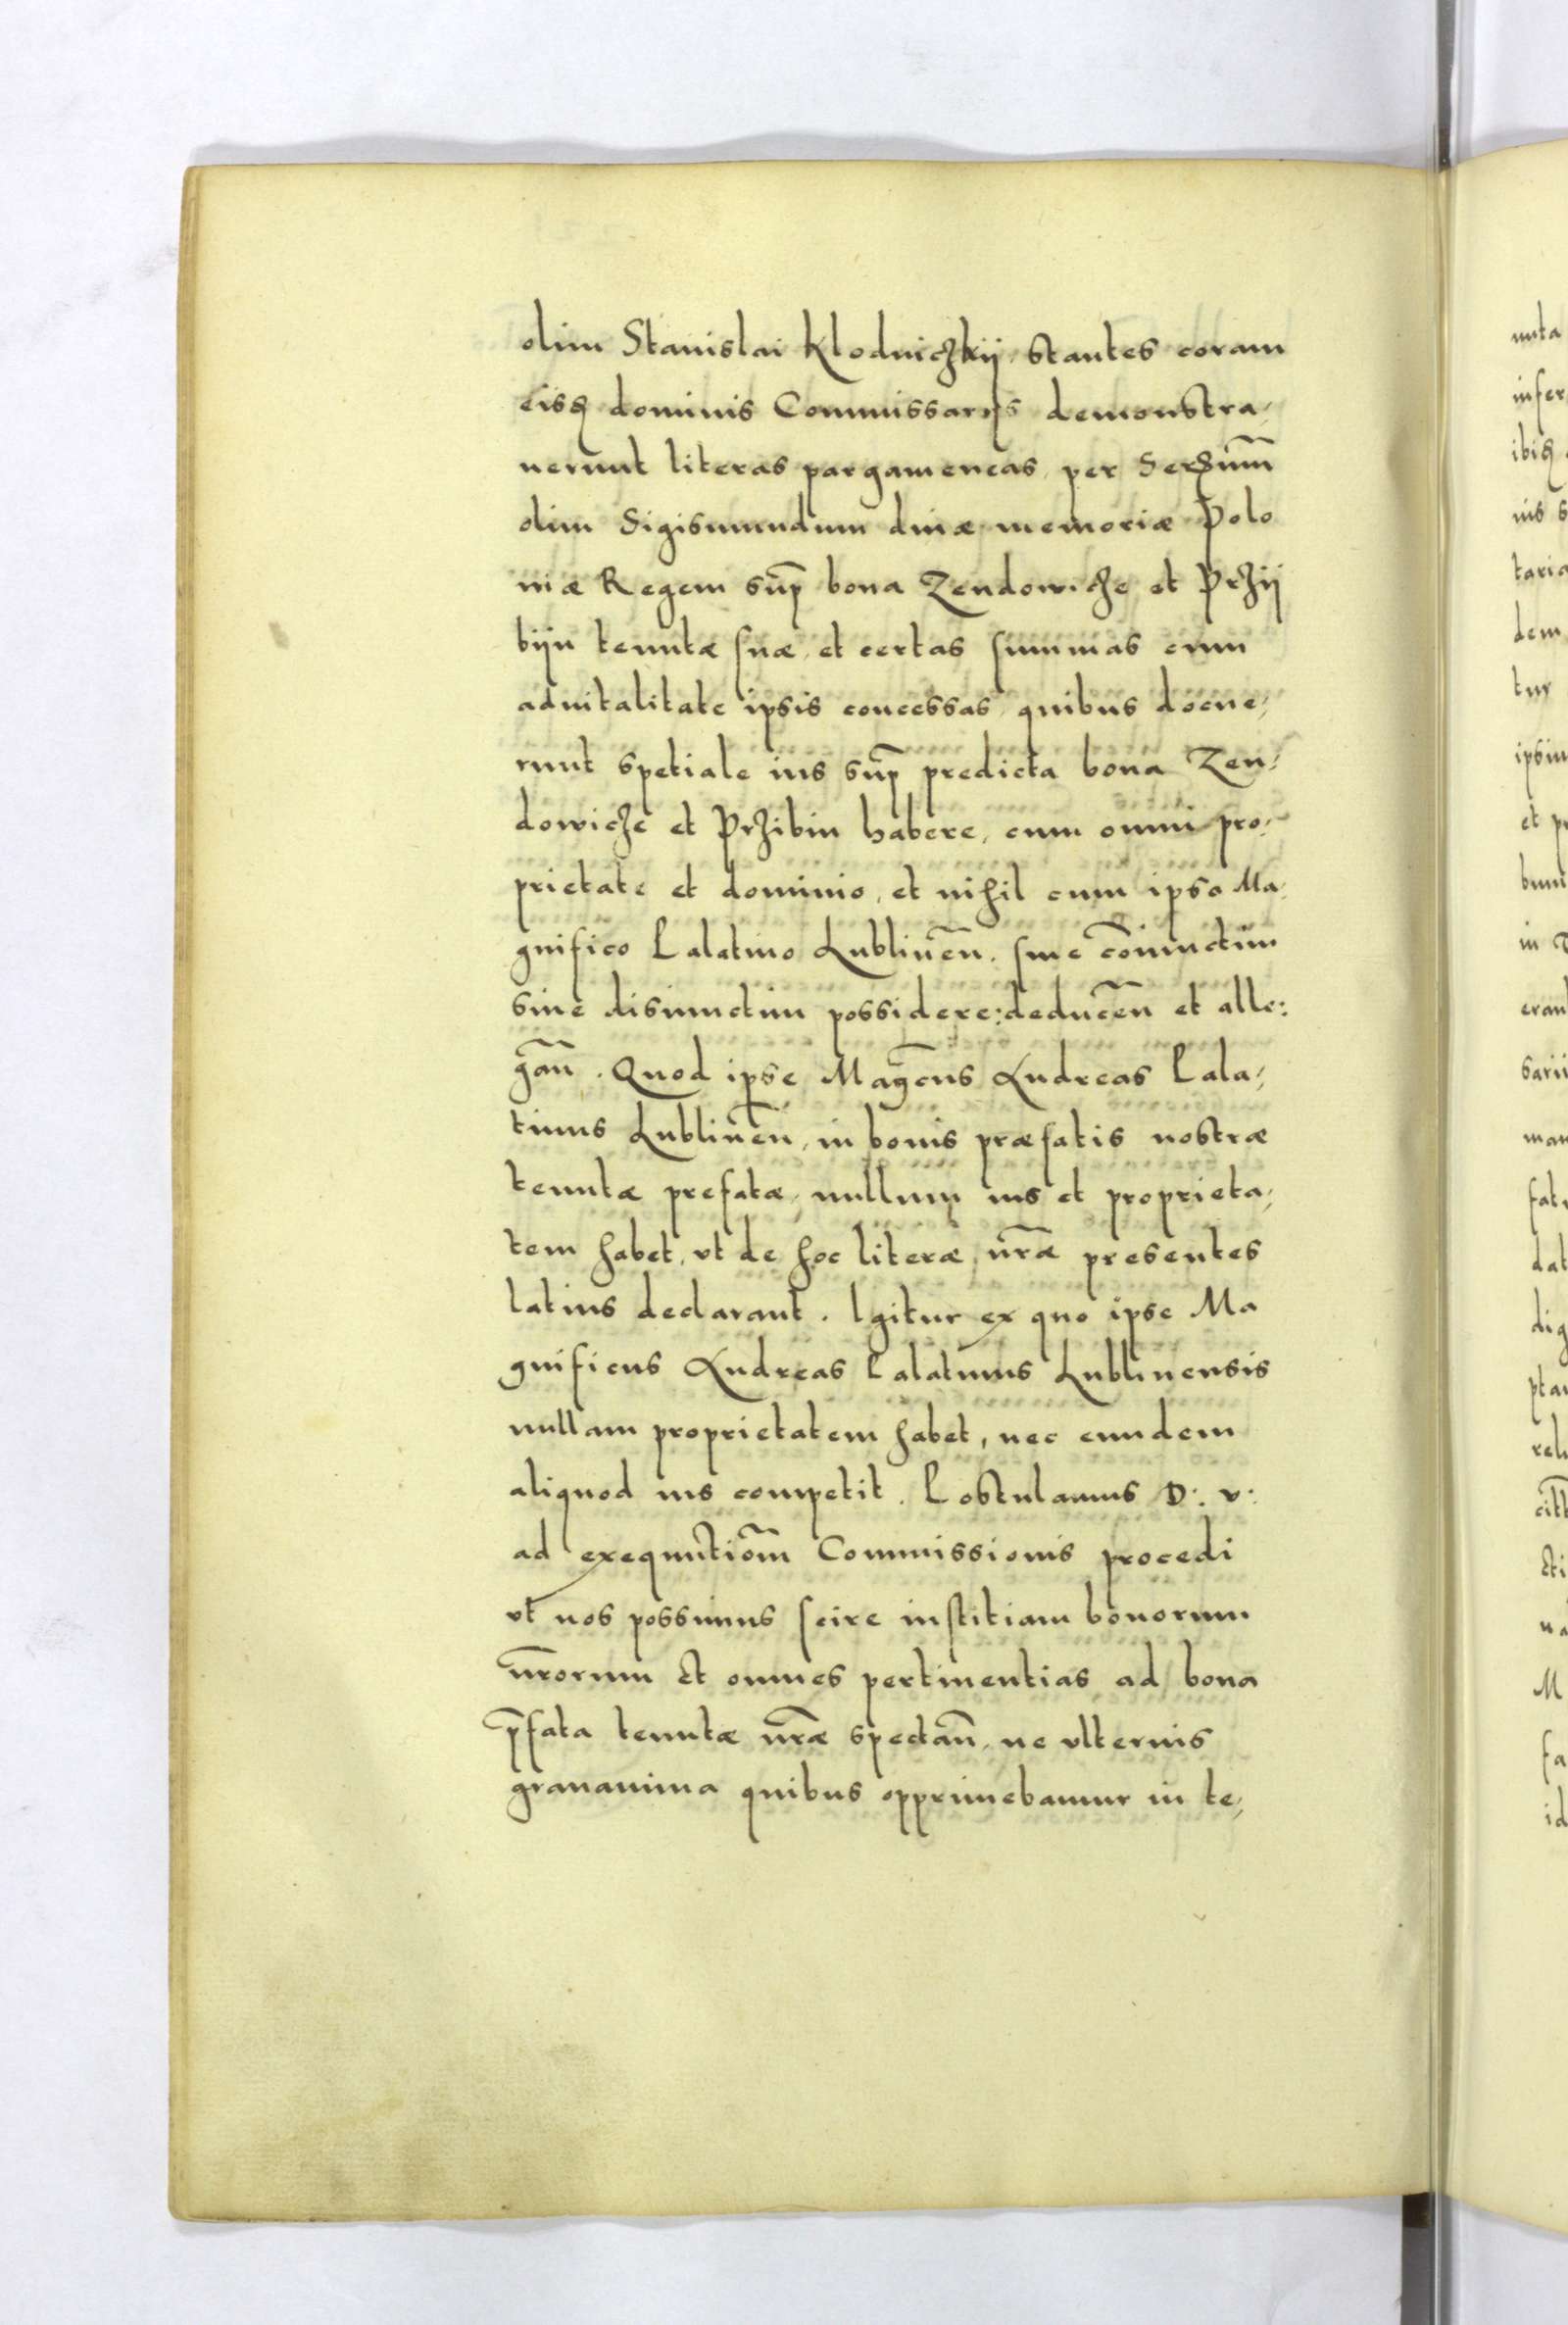 olim Stanislai Klodniczkij, stantes coram
eisꝗ dominis Commissarijs demonstra,
uerunt literas pargameneas, per Serꝗnum̃
olim Sigismundum diuæ memoriæ Polo
niæ Regem sup̄ bona Zendowicze et Przij
bijn tenutæ suæ, et certas summas cum
aduitalitate ipsis concessas, quibus docue,
runt spetiale ius sup̄ predicta bona Zen,
dowicze et Przibin habere, cum omni pro,
prietate et dominio, et nihil cum ipso Ma,
gnifico Palatino Lublineñ. siue cōiunctim
siue disiunctim possidere: deduceñ et alle:
gañ. Quod ipse Magc̄us Andreas Pala,
tinus Lublineñ, in bonis præfatis nostræ
tenutæ prefatæ, nullum ius et proprieta,
tem habet, vt de hoc literæ nr̃æ presentes
latius declarant. Igitur ex quo ipse Ma
gnificus Andreas Palatinus Lublinensis
nullam proprietatem habet, nec eundem
aliquod ius competit. Postulamus D: v:
ad exequutiom̃ Commissionis procedi
vt nos possimus scire iustitiam bonorum
nr̃orum Et omnes pertinentias ad bona
p̄fata tenutæ nr̃æ spectañ, ne vlterius
grauamina quibus opprimebamur in te,
nuta
infer
ibiꝗ
nis s
taria
dem
tur
ipsiu
et pr
bum
in
eran
sarii
man
fat
dat
dig
pta
rel
cit
cti
ua
M
fa
id